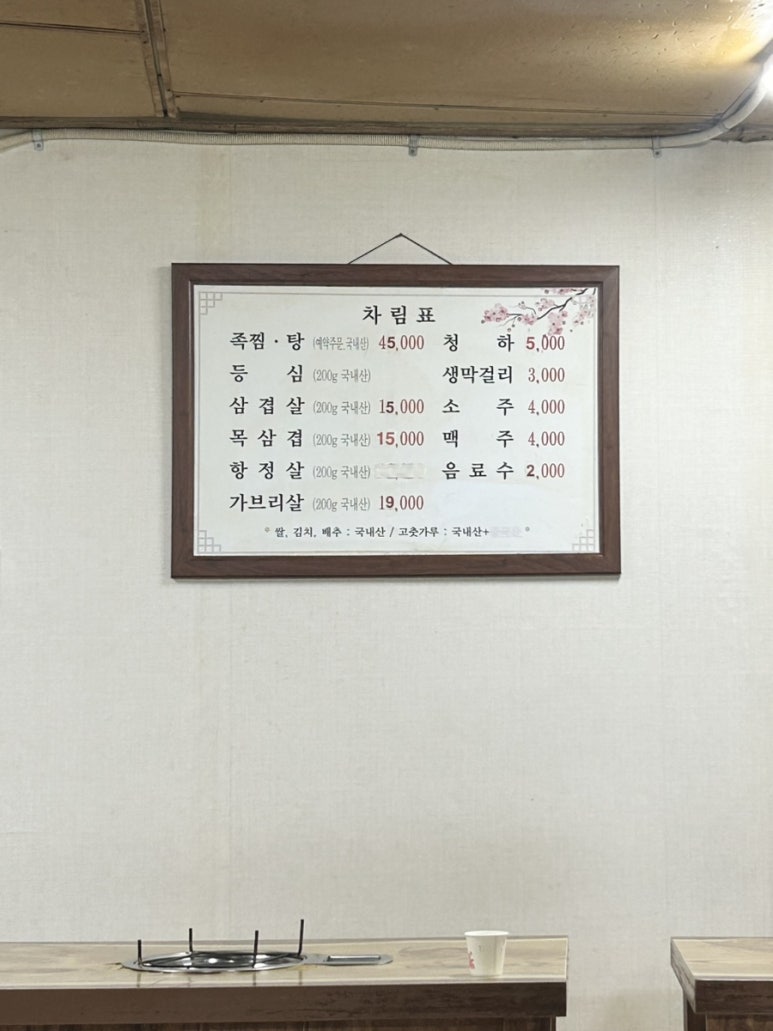 차림표
족찜·탕 (예약주문,국내산) 45,000
등심 (200g 국내산)
삼겹살 (200g 국내산) 15,000
목삼겹 (200g 국내산) 15,000
항정살 (200g 국내산)
가브리살 (200g 국내산) 19,000
청하 5,000
생막걸리 3,000
소주 4,000
맥주 4,000
음료수 2,000
* 쌀, 김치, 배추 : 국내산 / 고춧가루 : 국내산+ *